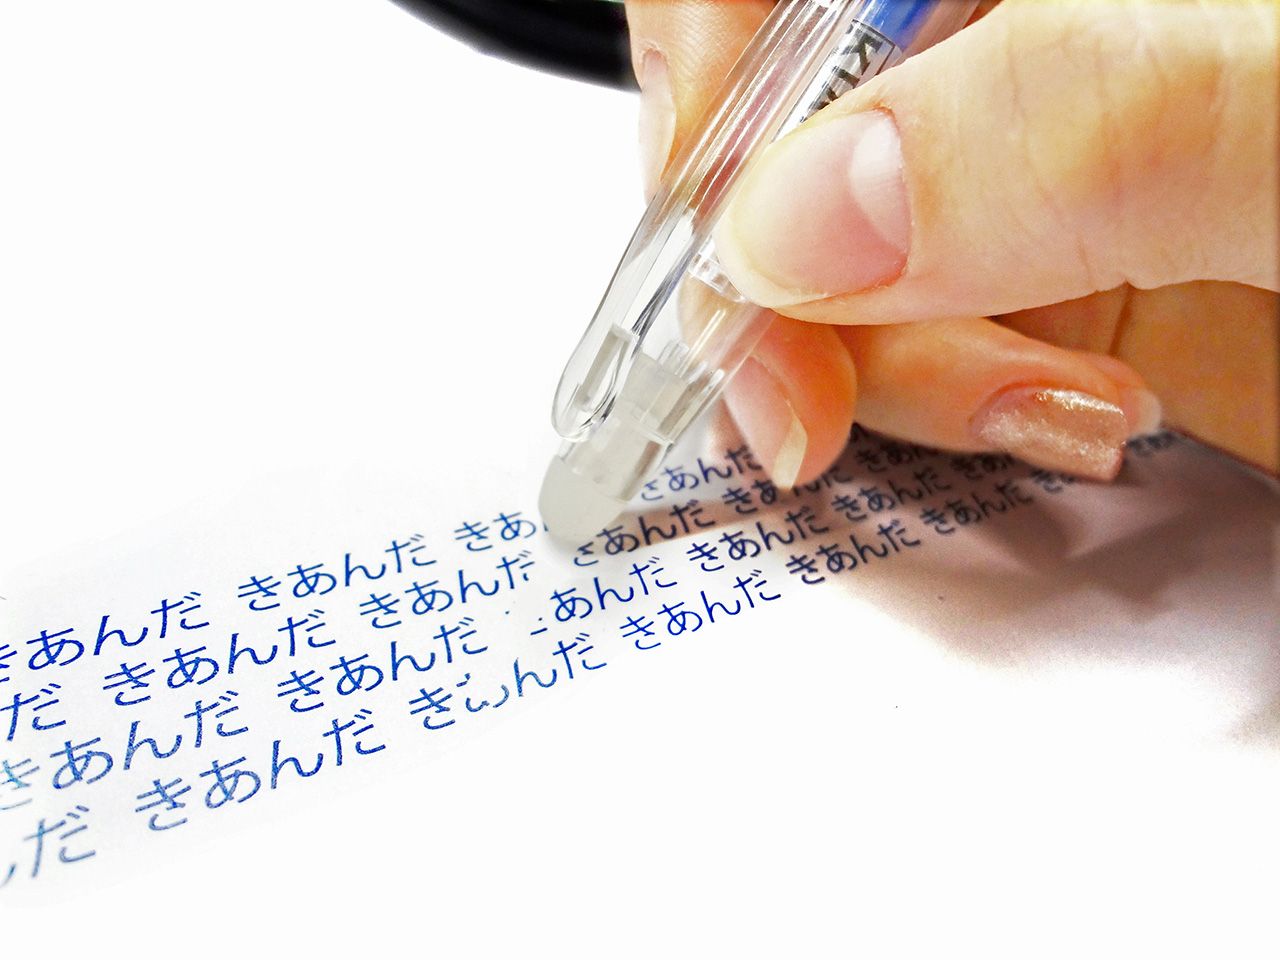 きあんだ きあんだ きあ きあんだ きあんだ
んだ きあんだ きあんだ きあんだ きあんだ きあんだ
きあんだ きあんだ あんだ きあんだ きあんだ きあんだ
んだ きあんだ きあんだ きあんだ きあんだ きあんだ